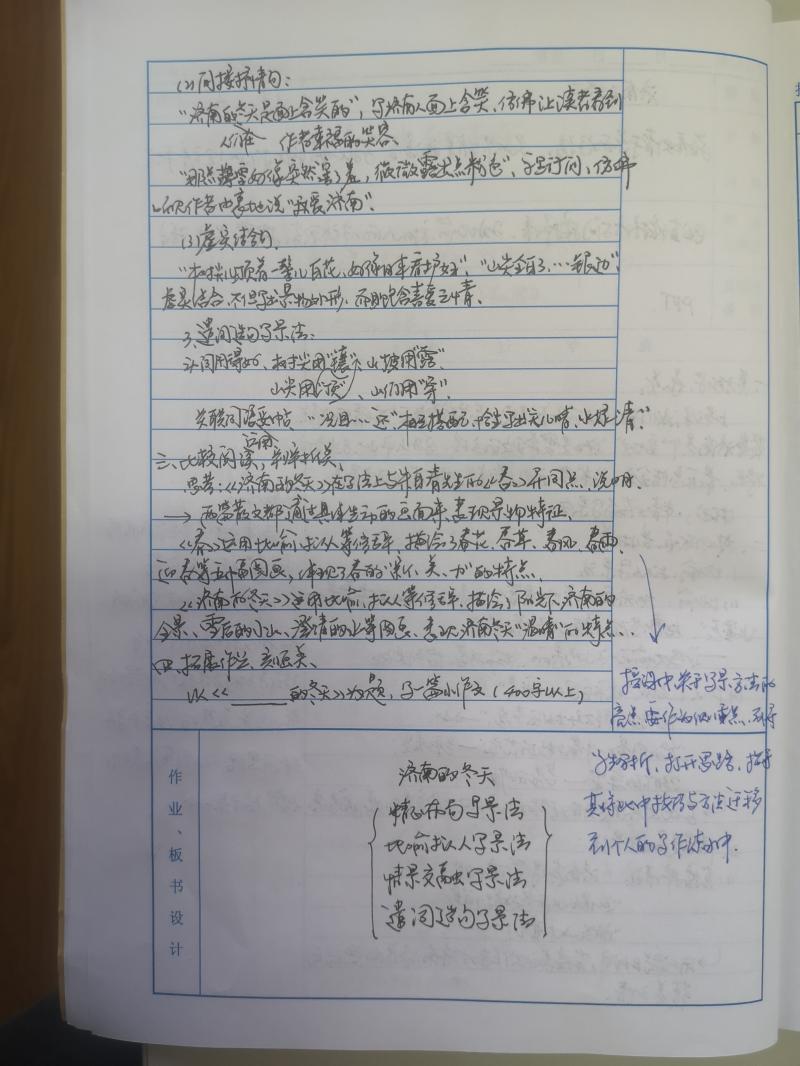 (2)间接抒情句:
"济南的冬天是面上含笑的",写济南人面上含笑、仿佛让读者看到
作者幸福的笑容、
"那点薄雪好像忽然害了羞,微微露出点粉色",字里行间,仿佛
作者由衷地说"我爱济南".
(3)虚实结合句、
"树尖儿顶着一髻儿白花,好像日本看护妇"、"山尖全白了…银边"
虚实结合,不但写出景物外形,而且饱含喜爱之情.
3、遣词造句写景法:
动词用得好、树尖用"顶"、山坡用"露"
山尖用"镶"、山们用"穿".
关联词语妥帖 "况且…还"相互搭配,水是清".
运用
三、比较阅读,
思考:《济南的冬天》在写法上与朱自清先生的《春》异同点,说明.
→ 两篇散文都通过具体生动的画面来表现景物特征.
《春》运用比喻、拟人等修辞,描绘了春花、春草、春风、春雨、
迎春等五幅图画,体现了春的"新、美、力"的特点.
《济南的冬天》运用比喻、拟人等修辞,描绘了阳光下济南的
全景、雪后的小山、澄清的水等图画、表现济南冬天"温晴"的特点.
四、拓展作业、
以《______的冬天》为题,写一篇小作文(400字以上)
授课中关于写景方法的
亮点要作为重点,引导
学生赏析,打开思路,指导
其将文中技巧与方法迁移
到个人的写作练习中.
作业、板书设计
济南的冬天
情景交融写景法
比喻拟人写景法
遣词造句写景法